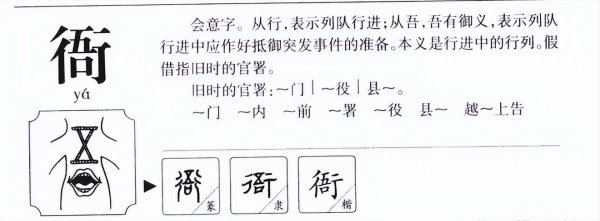 衙
yá
会意字。从行，表示列队行进；从吾，吾有御义，表示列队
行进中应作好抵御突发事件的准备。本义是行进中的行列。假
借指旧时的官署。
旧时的官署：～门｜～役｜县～。
～门 ～内 ～前 ～署 ～役 县～ 越～上告
衙 篆
衙 隶
衙 楷